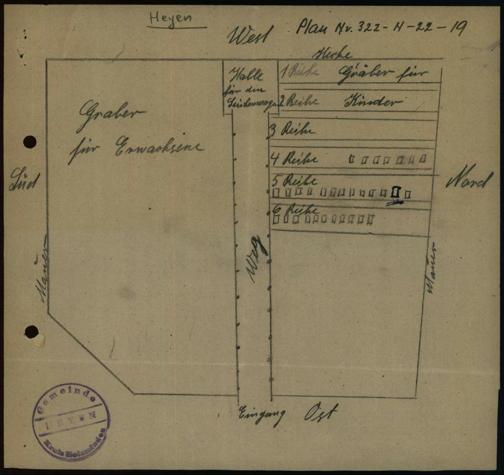 Heyen
Plan Nr. 322-H-22-19
West
Hecke
Halle
für den
Leichenwagen
1 Reihe Gräber für
2 Reihe Kinder
3 Reihe
4 Reihe
5 Reihe
6 Reihe
Gräber
für Erwachsene
Süd
Nord
Mauer
Weg
Mauer
Eingang Ost
Gemeinde
HEYEN
Kreis Holzminden